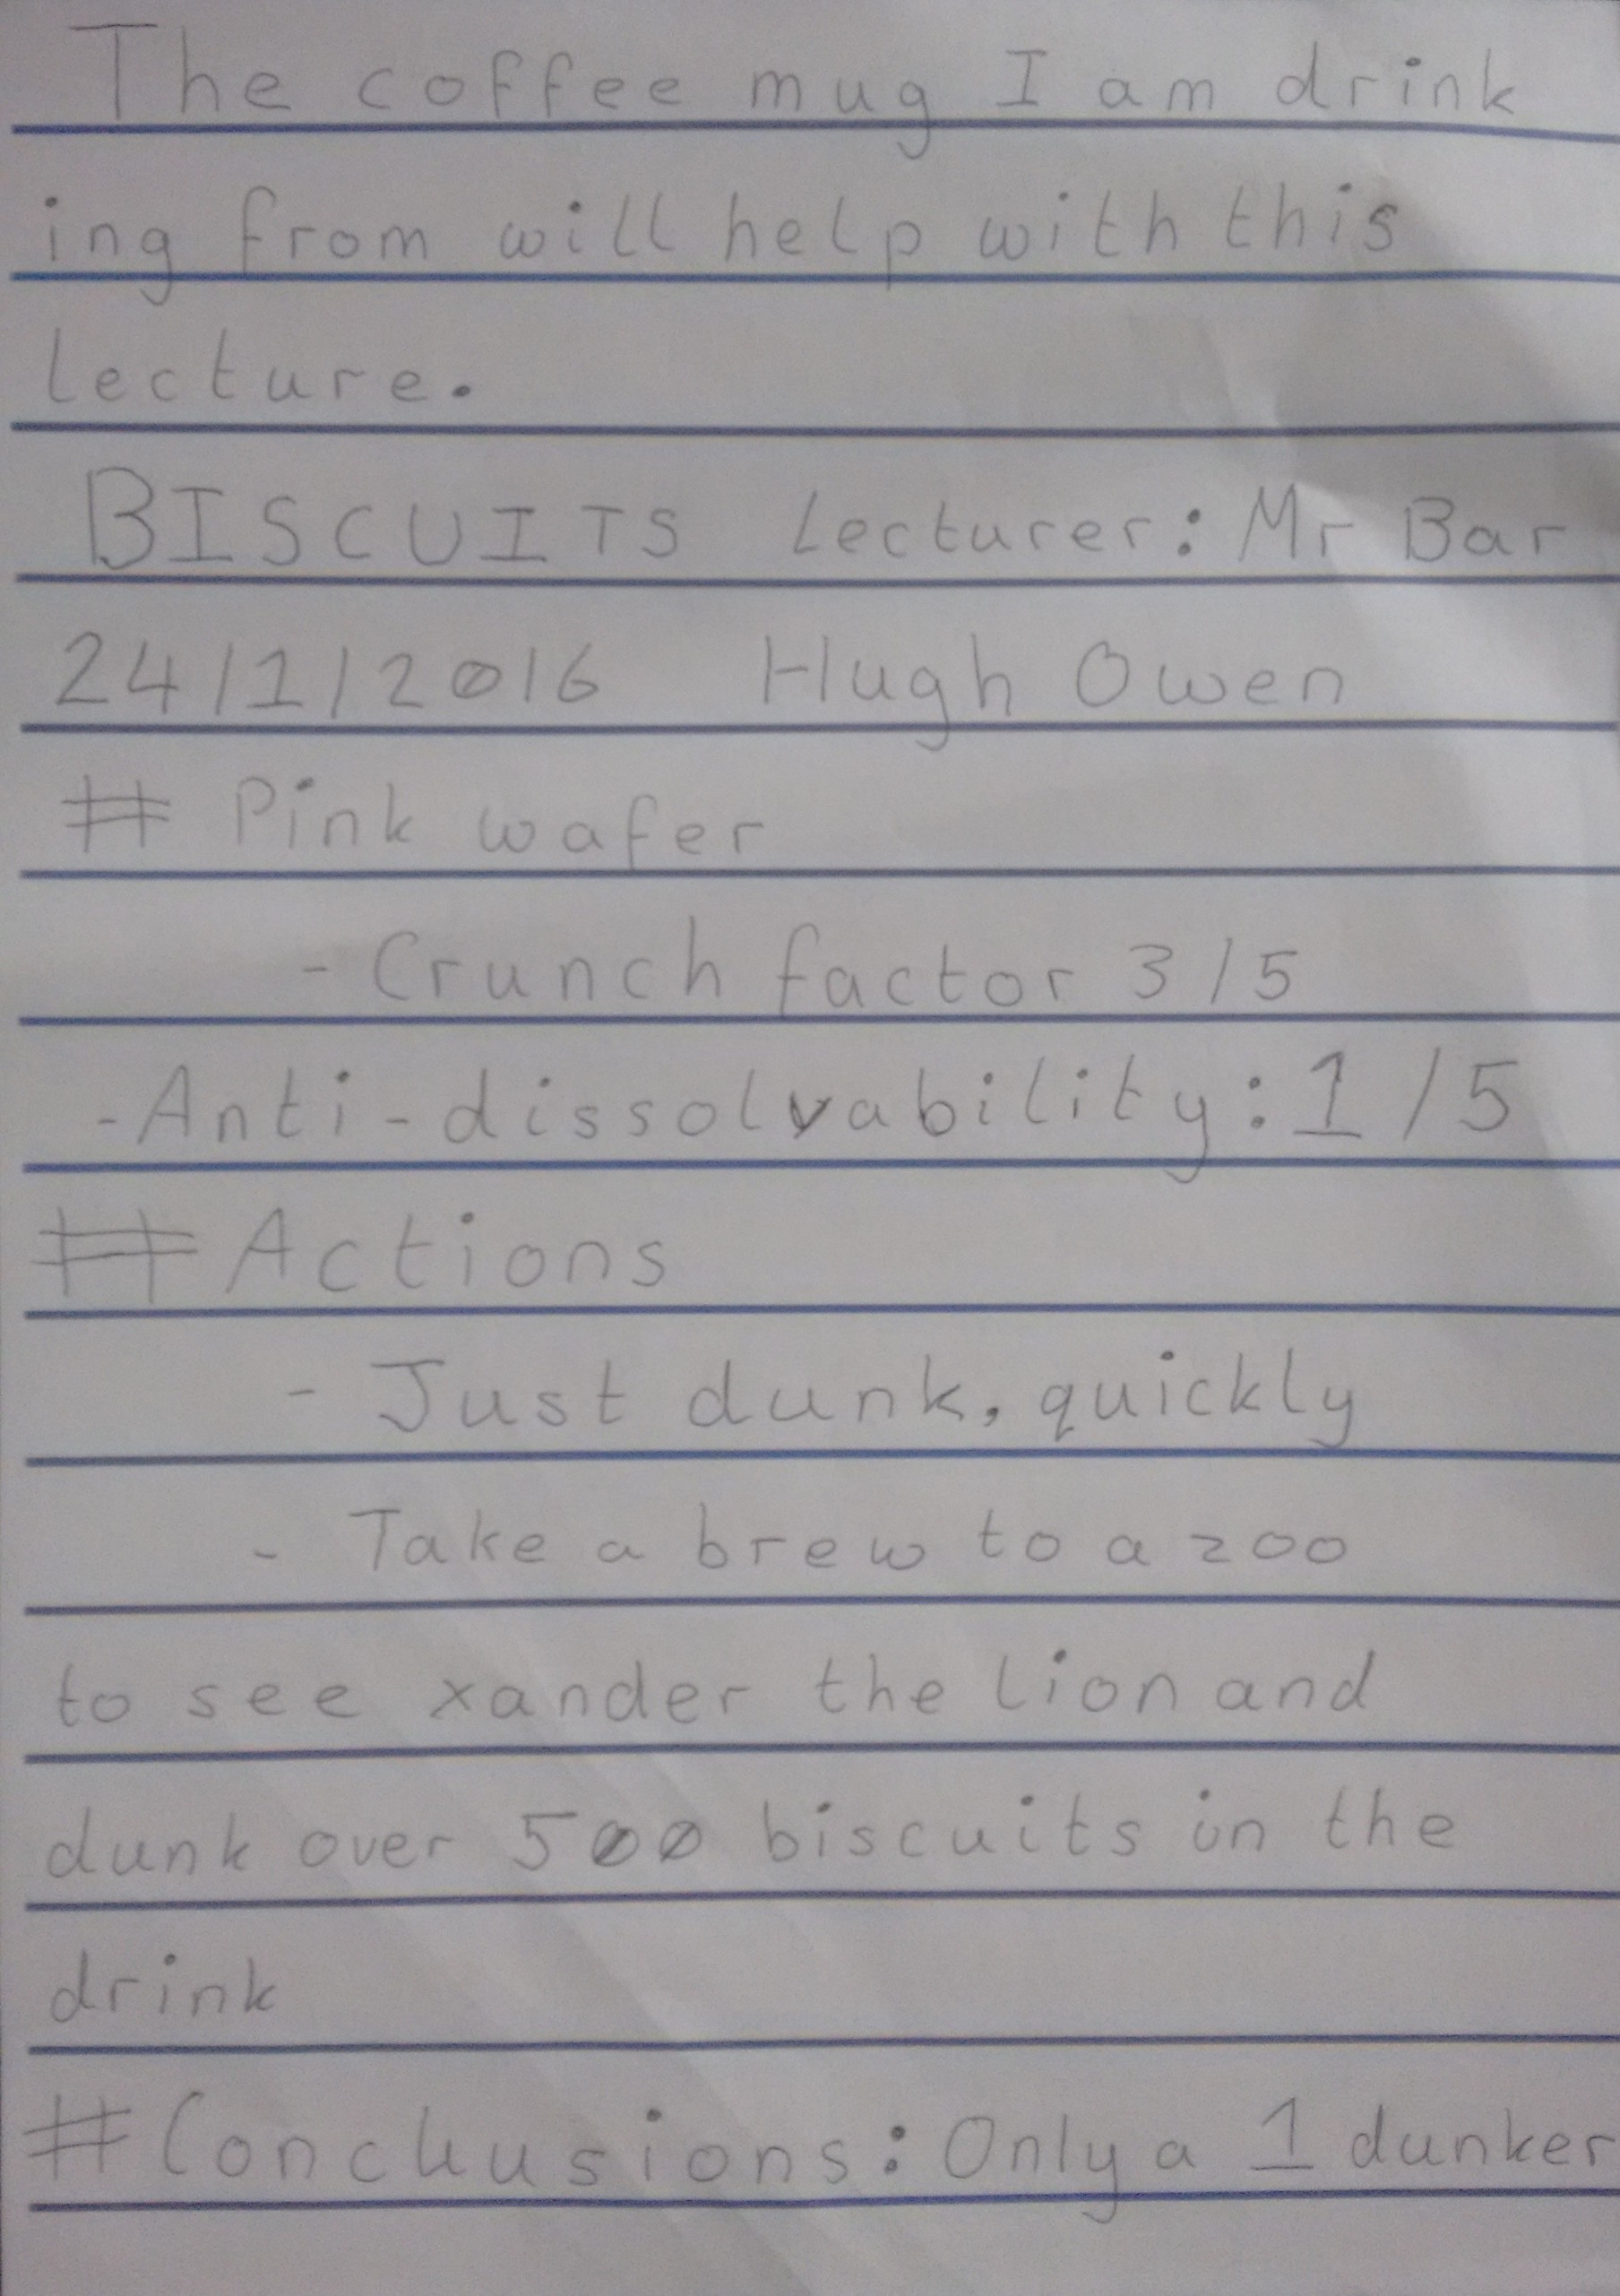 The coffee mug I am drink
ing from will help with this
lecture.
BISCUITS Lecturer: Mr Bar
24/1/2016 Hugh Owen
# Pink wafer
- Crunch factor 3/5
- Anti-dissolvability: 1/5
# Actions
- Just dunk, quickly
- Take a brew to a zoo
to see xander the lion and
dunk over 500 biscuits in the
drink
# Conclusions: Only a 1 dunker